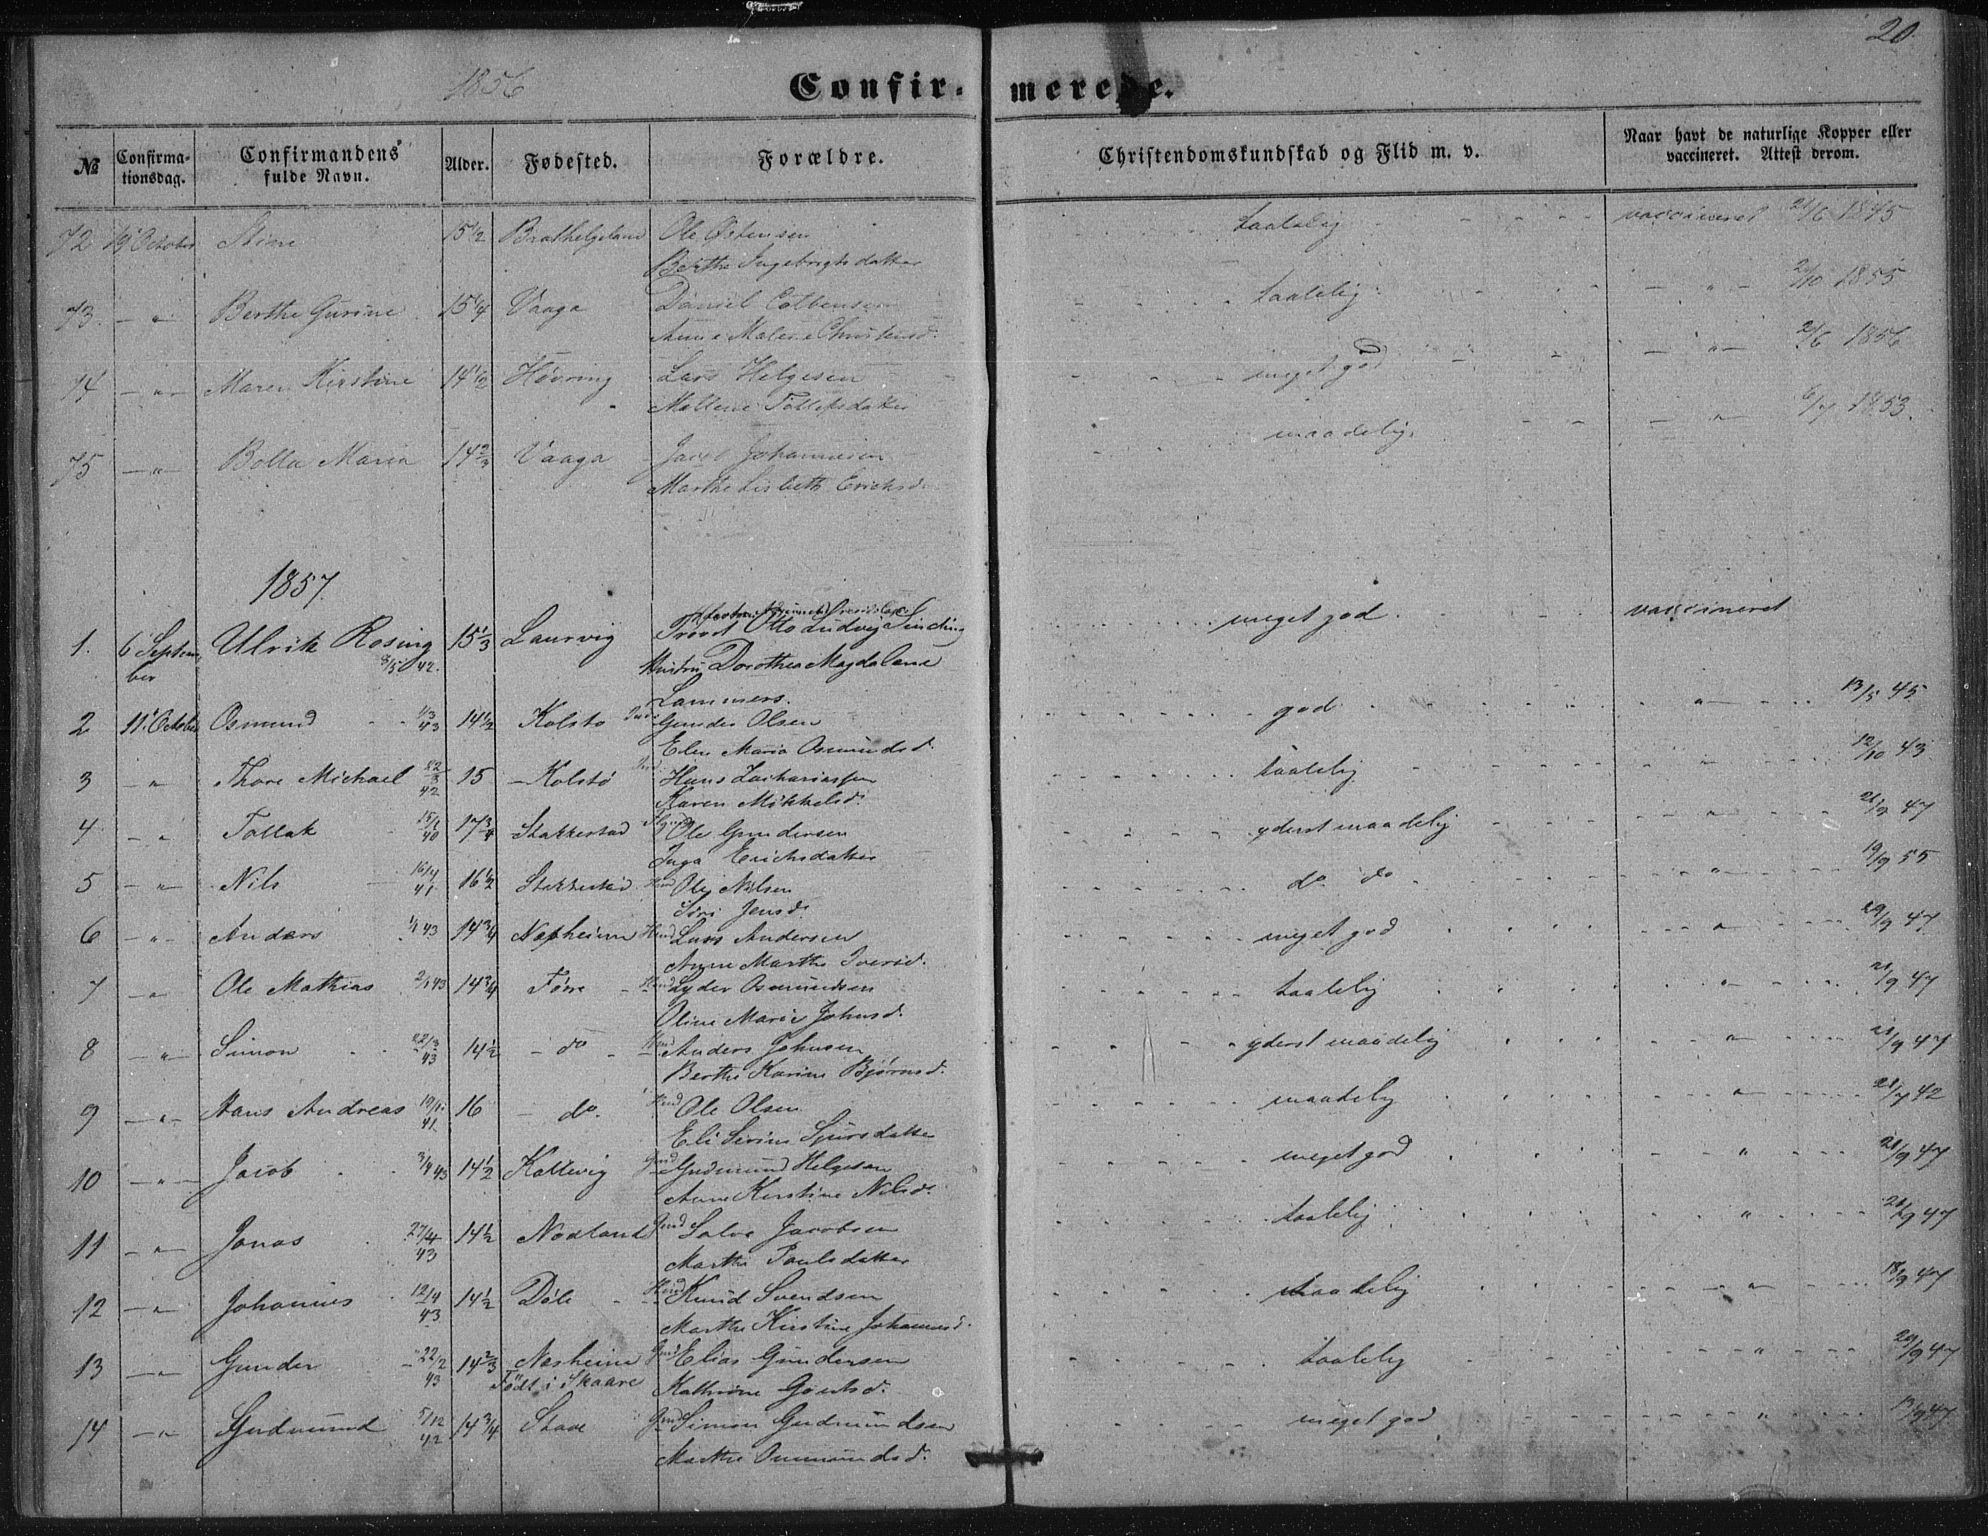 20.
1856
Confir- merede.
№ Confirma-tionsdag. Confirmandens fulde Navn. Alder. Fødested. Forældre. Christendomskundskab og Flid m. v. Naar havt de naturlige Kopper eller vaccineret. Attest derom.
72 19 October Stine 15 1/2 Brathelgeland Ole Østensen taalelig vaccineret 21/6 1845
Berthe Ingebrigtsdatter
73. — " Berthe Gurine 15 1/4 Vaaga Daniel taalelig — " — 2/10 1855
Anne Malene Christensd.
74 — " — Maren Kirstine 14 1/2 Høvring Lars Helgesen meget god — " — 2/6 1856
Mallene Tollefsdatter
75 — " — Bolla Maria 14 2/3 Vaaga Jacob Johannesen maadelig. — " 6/7 1853.
Marthe Lisbeth Erichsd.
1857.
1. 6 Septem-ber Ulrik Rosing 8/5 42. 15 1/3 Laurvig Provst Otto Ludvig Sinding meget god. vaccineret
Hustru Dorothea Magdalene
Lammers.
2 11. October Osmund 43 14 1/2 Kolstø Gunder Olsen god " 13/5 45
Elen Maria Osmundsd.
3 — " Thore Michael 42 15 — Kolstø Hans Zachariassen taalelig " 12/10 43
Karen Mikkelsd.
4 — " Tollak 40 17 3/4 Stakkestad Ole Gundersen yderst maadelig " 21/9 47
Inga Erichsdatter
5 — " — Nils 16/4 41 16 1/2 Stakkestad Ole Nilsen do do " 19/9 55
Siri Jensd.
6 — " — Anders 43 14 3/4 Nesheim Lars Andersen meget god " 20/9 47
Anne Marthe Iversd.
7 — " Ole Mathias 43 14 3/4 Føre Lyder Osmundsen taalelig " 21/9 47
Oline Marie Johnsd.
8 — " — Simon 22/3 43 14 1/2 — do — Anders Johnsen yderst maadelig " 21/9 47
Berthe Karine Bjørnsd.
9 — " — Hans Andreas 41 16 — do. Ole Olsen maadelig " 42
Eli Serine Sjursdatter
10 — " — Jacob 43 14 1/2 Kallevig Gudmund Helgesen meget god " 21/9 47
Anne Kirstine Nilsd.
11 — " Jonas 27/4 43 14 1/2 Nodland Salve Jacobsen taalelig " 21/9 47
Marthe Paulsdatter
12 — " Johannes 12/4 43 14 1/2 Døle Knud Svendsen maadelig " 18/9 47
Marthe Kirstine Johannesd.
13 — " Gunder 22/2 43 14 2/3 Nesheim Elias Gundersen taalelig " 20/9 47
Født i Skaare Kathrine
14 — " Gudmund 5/12 42 14 3/4 Stave Simon Gudmundsen meget god " 13/9 47
Marthe Ommundsd.